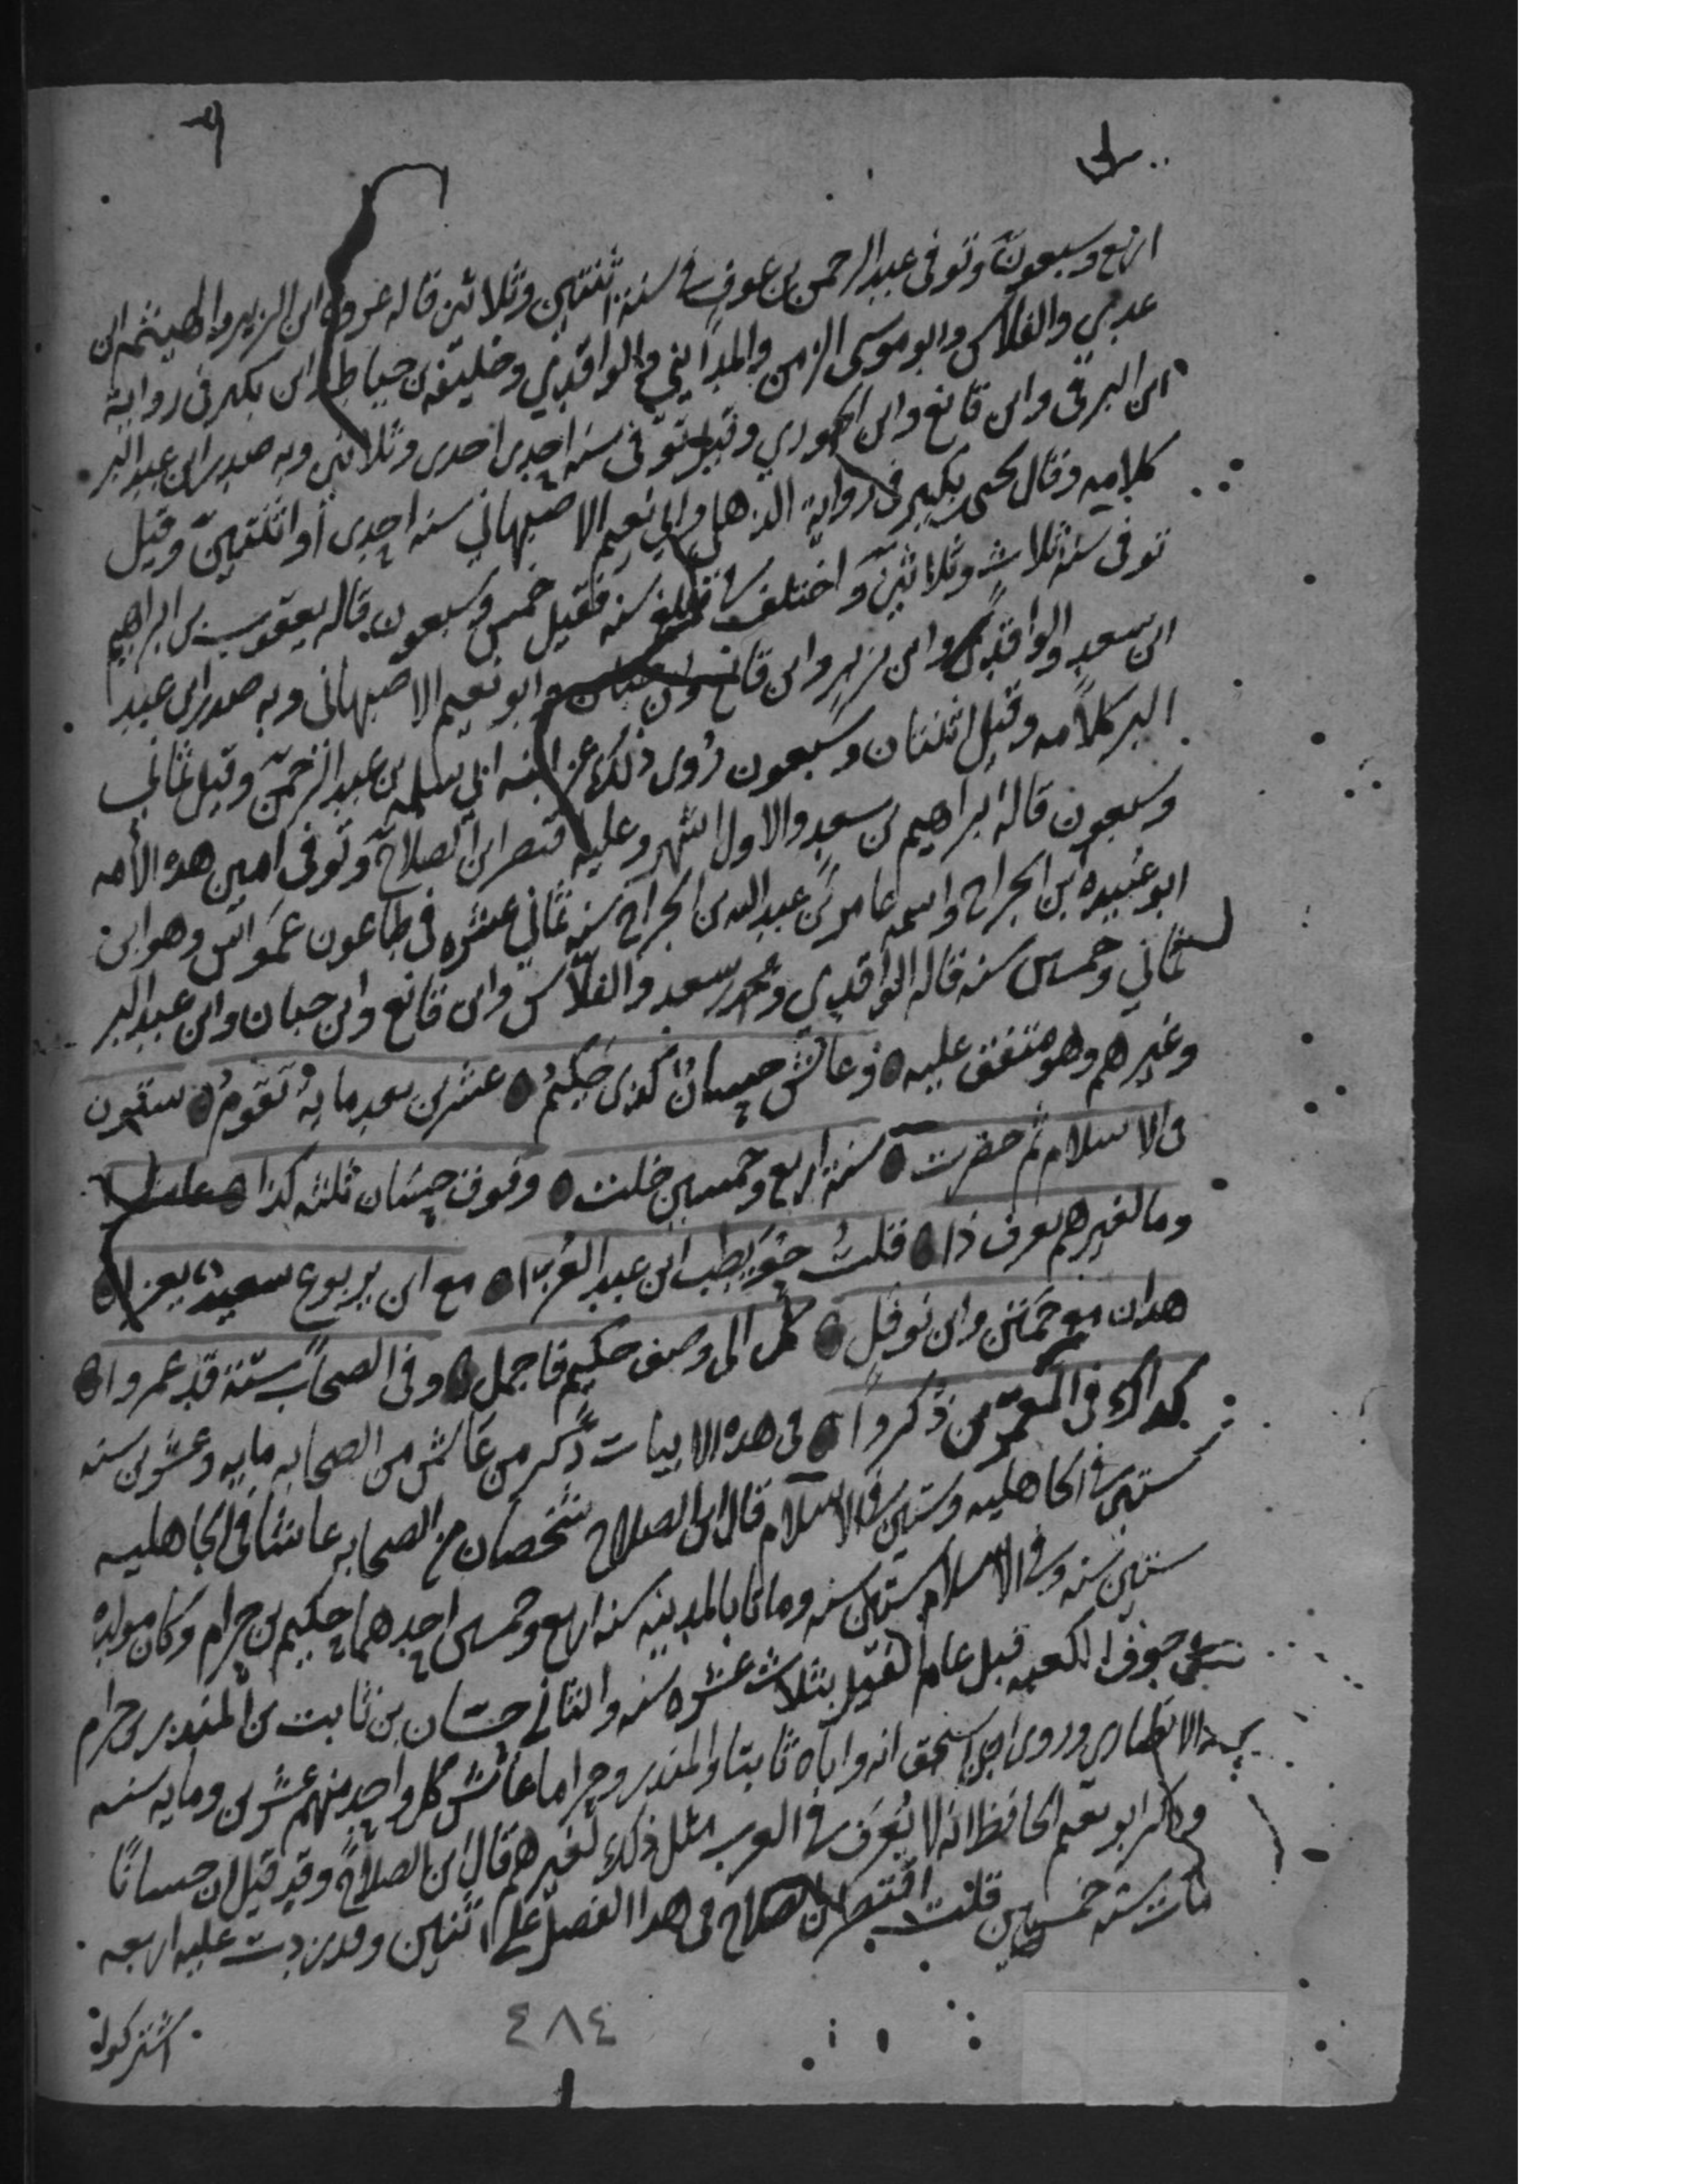 اربع وسبعون وتوفى عبد الرحمن بن عوف في سنة اثنتين وثلاثين قاله عروة ابن الزبير والهيثم ابن
عدى والفلاس وابو موسى الزمن والمدايني والواقدي وخليفه بن خياط وابن بكير في رواية
ابن البرقى وابن قانع وابن الجوزي وقيل توفى سنه احدى احدى وثلاثين وبه صدر ابن عبد البر
كلامه وقال يحيى بكير في رواية الذهلي وابي نعيم الاصبهاني سنه احدى أو اثنتين وقيل
توفى سنه ثلاث وثلاثين واختلف في مبلغ سنه فقيل خمس وسبعون قاله يعقوب بن ابراهيم
ابن سعد والواقدي وابن زبر وابن قانع وابن حبان وابو نعيم الاصبهانى وبه صدر ابن عبد
البر كلامه وقيل اثنتان وسبعون رُوى ذلك عن ابنه ابي سلمه بن عبد الرحمن وقيل ثماني
وسبعون قاله ابراهيم بن سعد والاول اشهر وعليه اقتصر ابن الصلاح وتوفى امين هذه الأمه
ابو عُبيده ابن الجراح واسمه عامر بن عبد الله بن الجراح سنه ثماني عشره في طاعون عمَواس وهو ابن
ثماني وخمسين سنه قاله الواقدي ومحمد سعد والفلّاس وابن قانع وابن حبان وابن عبد البر
وغيرهم وهو متفق عليه وعاش حسان كذى حكيمُ عشرين بعد مايةٍ تقومُ ستون
فى الاسلام ثم حضرت سنة اربع وخمسين خلت وفوق حسان ثلثه كذا عاشوا
وما لغيرهم يعرف ذا قلتُ حوَيطِب ابن عبد العُزا مع ابن يربوع سعيد يعزا
هذان مع حمنن وابن نوفل كل الى وصف حكيم فاجمل وفى الصحاب ستّة قد عمروا
كذاك فى المعمّرين ذُكروا فى هذه الابيات ذكر من عَاش من الصحابه مايه وعشرين سنه
ستين في الجاهليه وستين في الاسلام قال ابن الصلاح شخصان من الصحابه عاشا في الجاهليه
ستين سنه وفي الاسلام ستين سنه وماتا بالمدينه سنه اربع وخمسين احدهما حكيم بن حزام وكان مولده
في جوف الكعبه قبل عام الفيل بثلاث عشره سنه والثاني حسّان بن ثابت بن المنذر بن حرام
الانصارى وروى ابن اسحق انه واباه ثابتا والمنذر وحراما عاش كل واحد منهم عشرين ومايه سنه
وذكر ابو نعيم الحافظ انه لا يُعرَف في العرب مثل ذلك لغيرهم قال ابن الصلاح وقد قيل ان حسانًا
مات سنه خمسين قلت اقتصر ابن الصلاح فى هذا الفصل على اثنين وقد زدت عليه اربعه
اشتركوا
٤٨٤